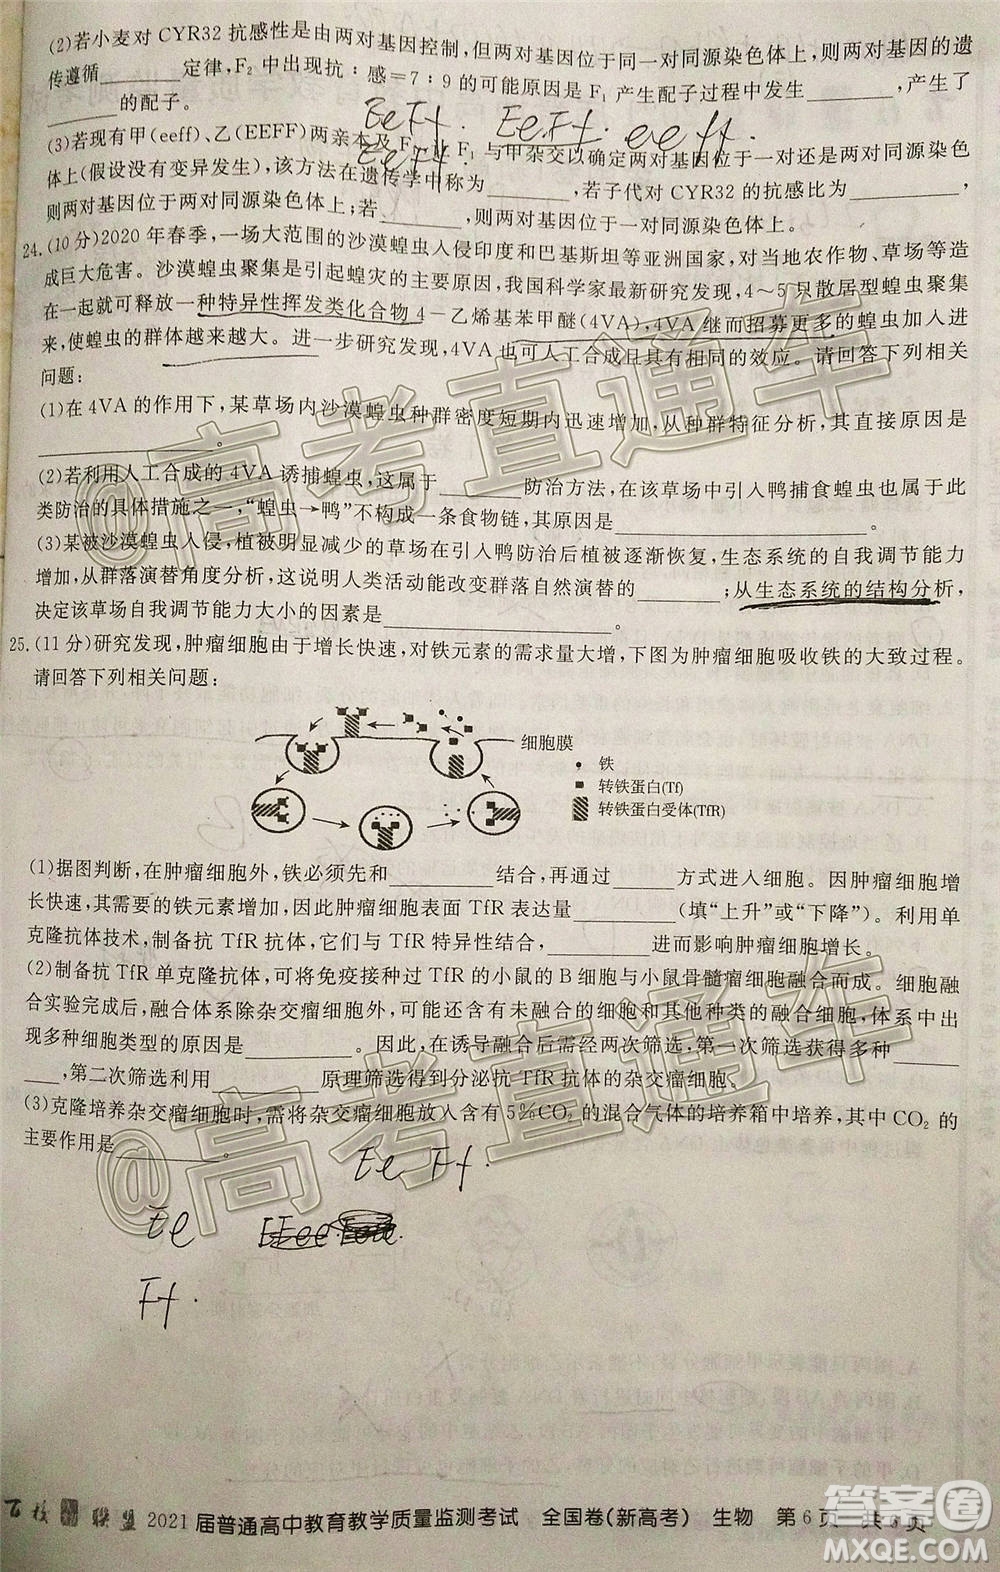 (2)若小麦对 CYR32 抗感性是由两对基因控制,但两对基因位于同一对同源染色体上,则两对基因的遗
传遵循________定律,F₂ 中出现抗:感=7:9 的可能原因是 F₁ 产生配子过程中发生________,产生了
________的配子。
EeFf. EeFf. eeff.
EeFf
(3)若现有甲(eeff)、乙(EEFF)两亲本及 F₁,让 F₁ 与甲杂交以确定两对基因位于一对还是两对同源染色
体上(假设没有变异发生),该方法在遗传学中称为________,若子代对 CYR32 的抗感比为________,
则两对基因位于两对同源染色体上;若________,则两对基因位于同一对同源染色体上。
24.(10分)2020年春季,一场大范围的沙漠蝗虫入侵印度和巴基斯坦等亚洲国家,对当地农作物、草场等造
成巨大危害。沙漠蝗虫聚集是引起蝗灾的主要原因,我国科学家最新研究发现,4~5只散居型蝗虫聚集
在一起就可释放一种特异性挥发类化合物4-乙烯基苯甲醚(4VA),4VA继而招募更多的蝗虫加入进
来,使蝗虫的群体越来越大。进一步研究发现,4VA也可人工合成且具有相同的效应。请回答下列相关
问题:
(1)在4VA的作用下,某草场内沙漠蝗虫种群密度短期内迅速增加,从种群特征分析,其直接原因是
________。
(2)若利用人工合成的4VA诱捕蝗虫,这属于________防治方法,在该草场中引入鸭捕食蝗虫也属于
此类防治的具体措施之一,“蝗虫→鸭”不构成一条食物链,其原因是________。
(3)某被沙漠蝗虫入侵,植被影响大的草场在引入鸭防治后植被逐渐恢复,生态系统的自我调节能力
增加,从群落演替角度分析,这说明人类活动能改变群落自然演替的________;从生态系统的结构分析,
决定该草场自我调节能力大小的因素是________。
25.(11分)研究发现,肿瘤细胞由于增长快速,对铁元素的需求量大增,下图为肿瘤细胞吸收铁的大致过程。
请回答下列相关问题:
细胞膜
铁
转铁蛋白(Tf)
转铁蛋白受体(TfR)
(1)据图判断,在肿瘤细胞外,铁必须先和________结合,再通过________方式进入细胞。因肿瘤细胞增
长快速,其需要的铁元素增加,因此肿瘤细胞表面 TfR 表达量________(填“上升”或“下降”)。利用单
克隆抗体技术,制备抗 TfR 抗体,它们与 TfR 特异性结合,________进而影响肿瘤细胞增长。
(2)制备抗 TfR 单克隆抗体,可将免疫接种过 TfR 的小鼠的 B 细胞与小鼠骨髓瘤细胞融合而成。细胞融
合实验完成后,融合体系除杂交瘤细胞外,可能还含有未融合的细胞和其他种类的融合细胞,体系中出
现多种细胞类型的原因是________。因此,在诱导融合后需经两次筛选,第一次筛选获得多种____
____,第二次筛选利用________原理筛选得到分泌抗 TfR 抗体的杂交瘤细胞。
(3)克隆培养杂交瘤细胞时,需将杂交瘤细胞放入含有5%CO₂ 的混合气体的培养箱中培养,其中 CO₂ 的
主要作用是________。
Ee Ff.
Ee
Ff.
@高考直通车
@高考直通车
百校联盟 2021届普通高中教育教学质量监测考试 全国卷(新高考) 生物 第6页 共8页
答案圈
MXQE.COM